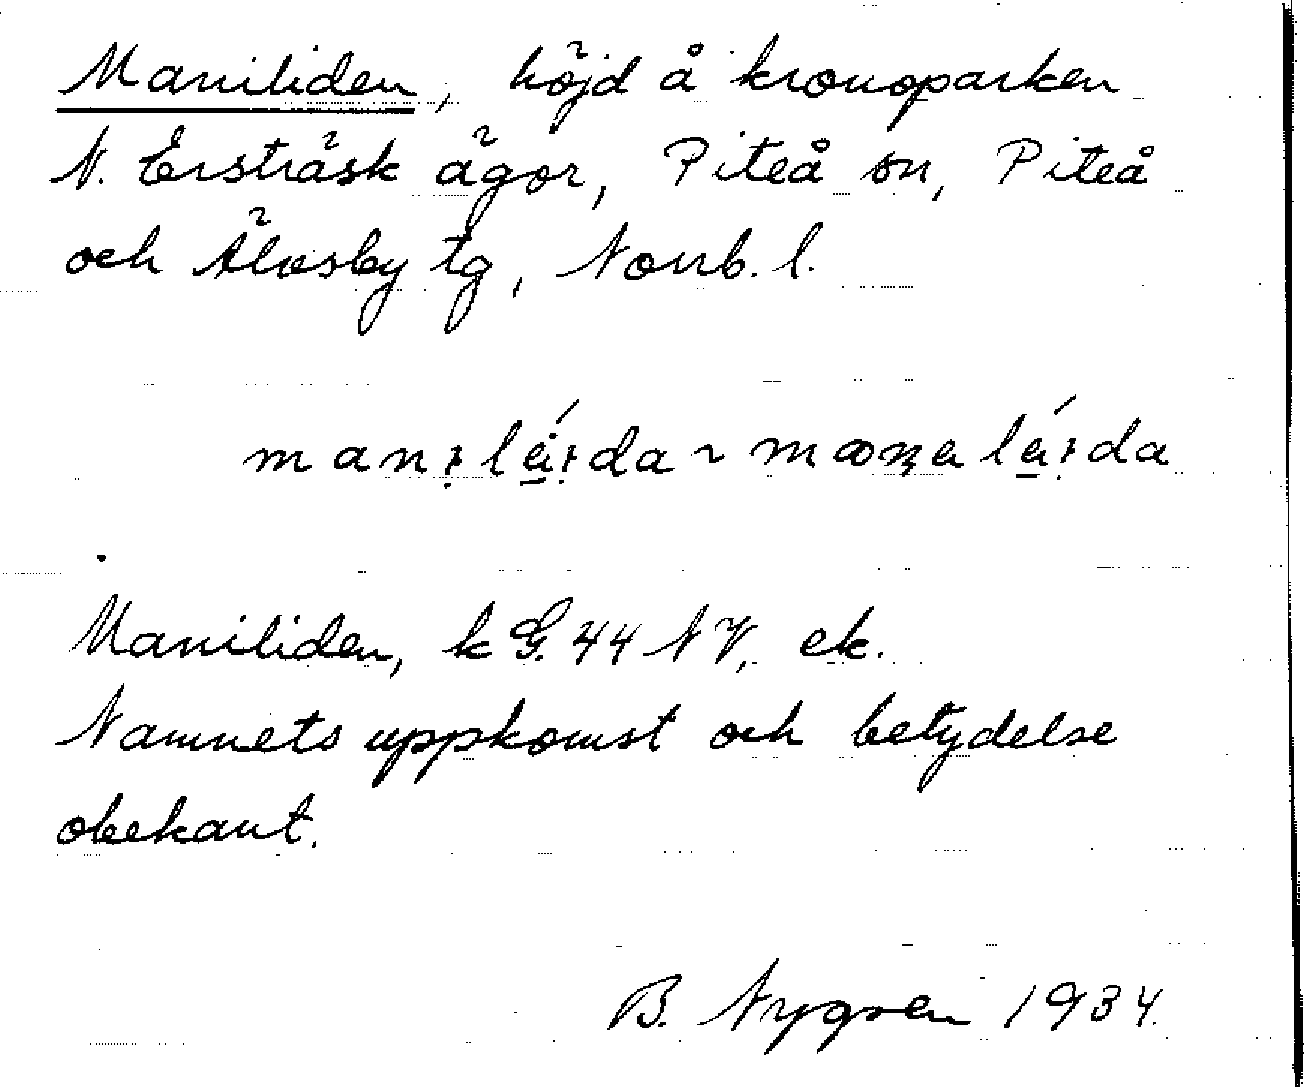 Maniliden, höjd å kronoparken
N. Ersträsk ägor, Piteå sn, Piteå
och Älvsby tg, Norrb. l.
Maniliden, k G. 44 NV, ek.
Namnets uppkomst och betydelse
obekant.
B. Nygren 1934.